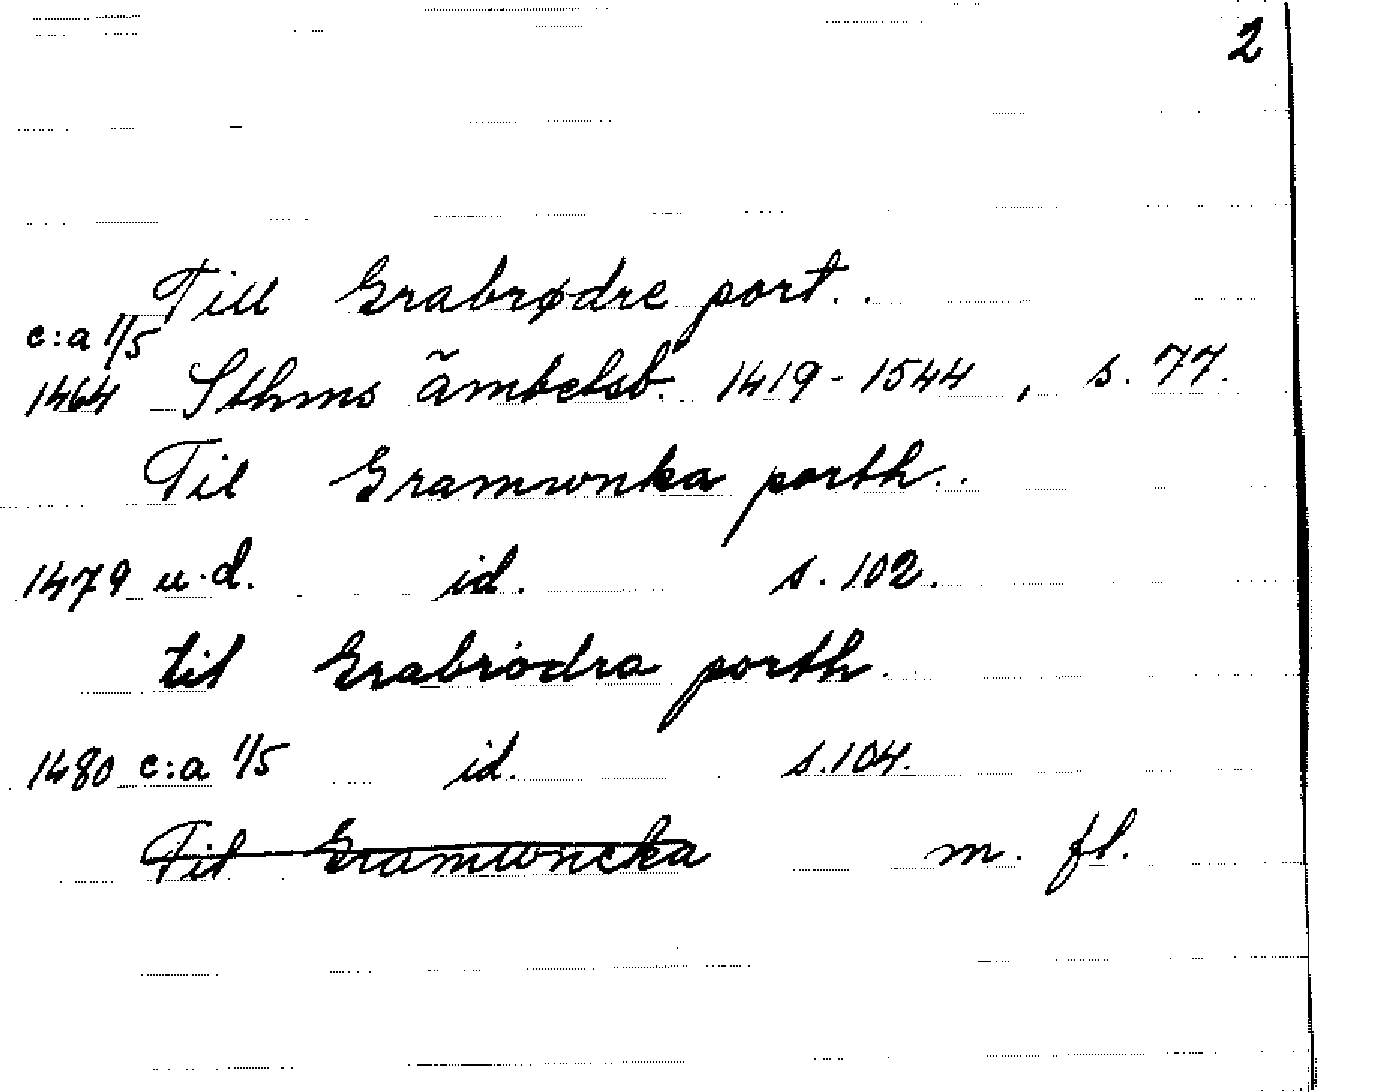 2
Till Grabrødre port..
c:a 1/5
1464 Sthms ämbetsb. 1419-1544, s. 77.
Til Gramwnka porth..
1479 u.d. id. s. 102.
til Grabrödra porth.
1480 c:a 1/5 id. s. 104.
Til Gramwncka m. fl.